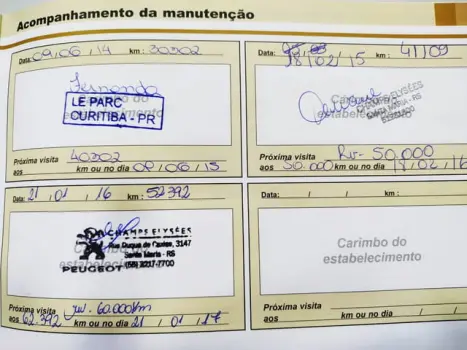 Acompanhamento da manutenção
Data: 09/06/14 km: 30302
Fernando
LE PARC
CURITIBA - PR
Carimbo do
estabelecimento
Próxima visita 40302
aos km ou no dia 09/06/15
Data: 18/02/15 km: 41109
CHAMPS ELYSÉES
SANTA MARIA - RS
Carimbo do
estabelecimento
Próxima visita Rv- 50.000
aos 50.000 km ou no dia 18/02/16
Data: 21/01/16 km: 52392
CHAMPS ELYSÉES
Rua Duque de Caxias, 3147
Santa Maria - RS
PEUGEOT (55) 3217-7700
estabelecimento
Próxima visita rev. 60.000km
aos 62.392 km ou no dia 21/01/17
Data: / / km:
Carimbo do
estabelecimento
Próxima visita
aos km ou no dia / /